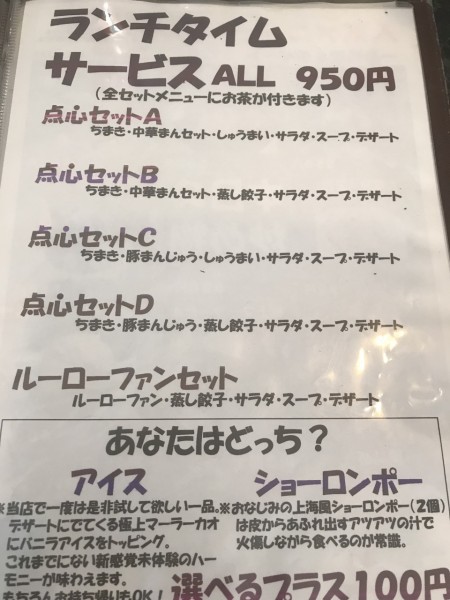 ランチタイム
サービス ALL 950円
(全セットメニューにお茶が付きます)
点心セットA
ちまき・中華まんセット・しゅうまい・サラダ・スープ・デザート
点心セットB
ちまき・中華まんセット・蒸し餃子・サラダ・スープ・デザート
点心セットC
ちまき・豚まんじゅう・しゅうまい・サラダ・スープ・デザート
点心セットD
ちまき・豚まんじゅう・蒸し餃子・サラダ・スープ・デザート
ルーローファンセット
ルーローファン・蒸し餃子・サラダ・スープ・デザート
あなたはどっち?
アイス
※当店で一度は是非試して欲しい一品。
デザートにでてくる極上マーラーカオ
にバニラアイスをトッピング。
これまでにない新感覚未体験のハー
モニーが味わえます。
もちろんお持ち帰りもOK!
ショーロンポー
※おなじみの上海風ショーロンポー(2個)
は皮からあふれ出すアツアツの汁で
火傷しながら食べるのが常識。
選べるプラス100円